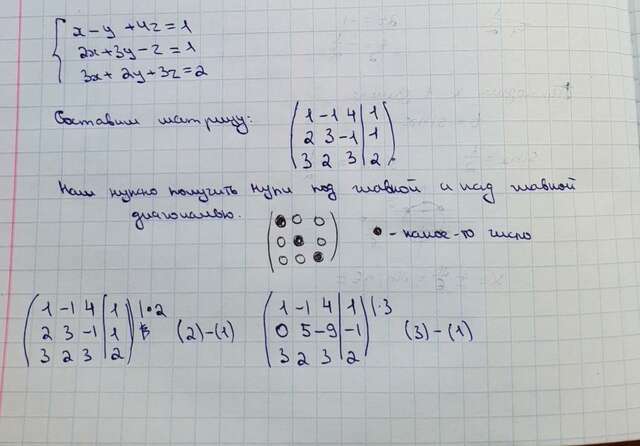 x - y + 4z = 1
2x + 3y - z = 1
3x + 2y + 3z = 2
Составим матрицу: ( 1 -1 4 | 1
2 3 -1 | 1
3 2 3 | 2 )
Нам нужно получить нули под главной и над главной
диагональю.
● - какое-то число
( 1 -1 4 | 1 ) | · 2
2 3 -1 | 1 (2) - (1)
3 2 3 | 2
( 1 -1 4 | 1 ) | · 3
0 5 -9 | -1 (3) - (1)
3 2 3 | 2